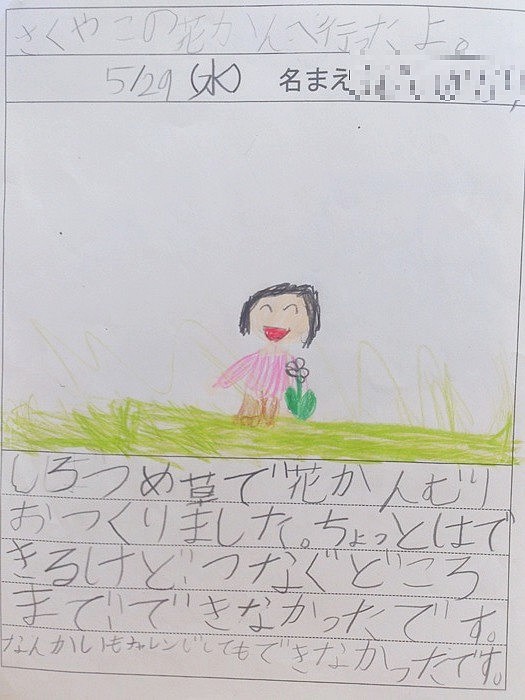 さくやこの花かんへ行たよ。
5/29(水) 名まえ
しろつめ草で花かんむり
おつくりました。ちょっとはで
きるけど、つなぐどころ
まで、できなかったです。
なんかいもチャレンじしてもできなかったです。